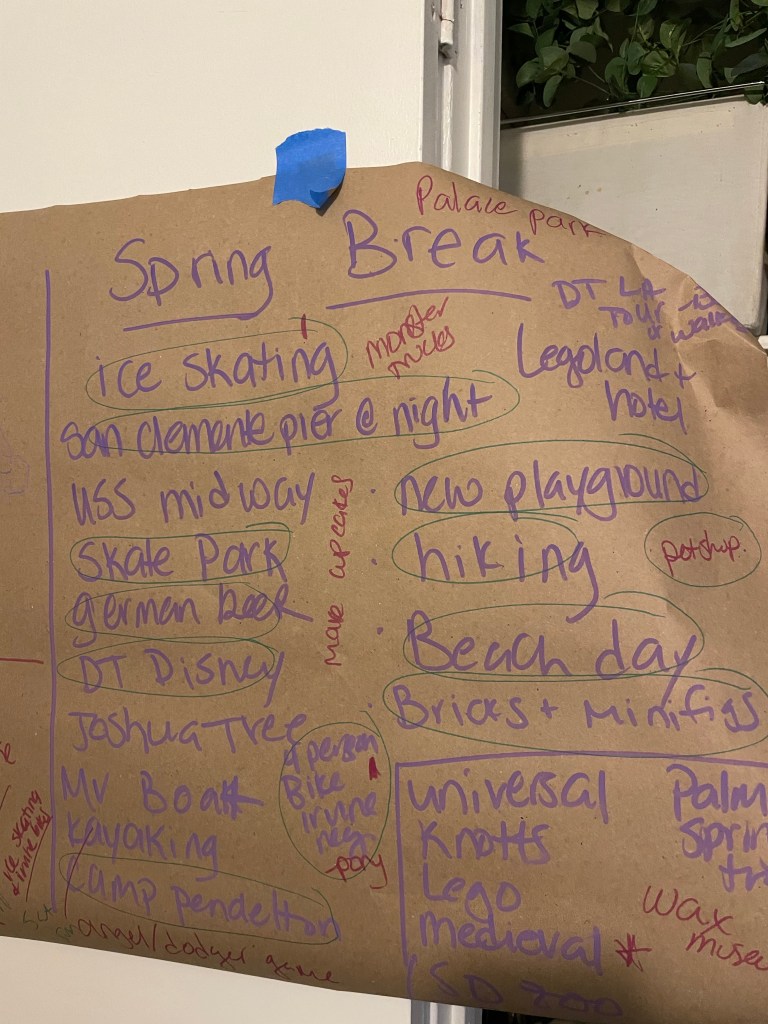 Palace park
Spring Break
DT LA
Tour
or
ice skating
monster
trucks
Legoland +
hotel
san clemente pier @ night
USS midway
make cupcakes
· new playground
Skate Park
· hiking
petshop.
german beer
· Beach day
DT Disney
· Bricks + Minifigs
Joshua Tree
4 person
Bike
irvine
reg.
pony
MV Boat
kayaking
Camp pendelton
angel/dodger game
ice skating
+ irvine
universal
Knotts
Lego
medieval *
SD zoo
Palm
Sprin
tri
wax
museu